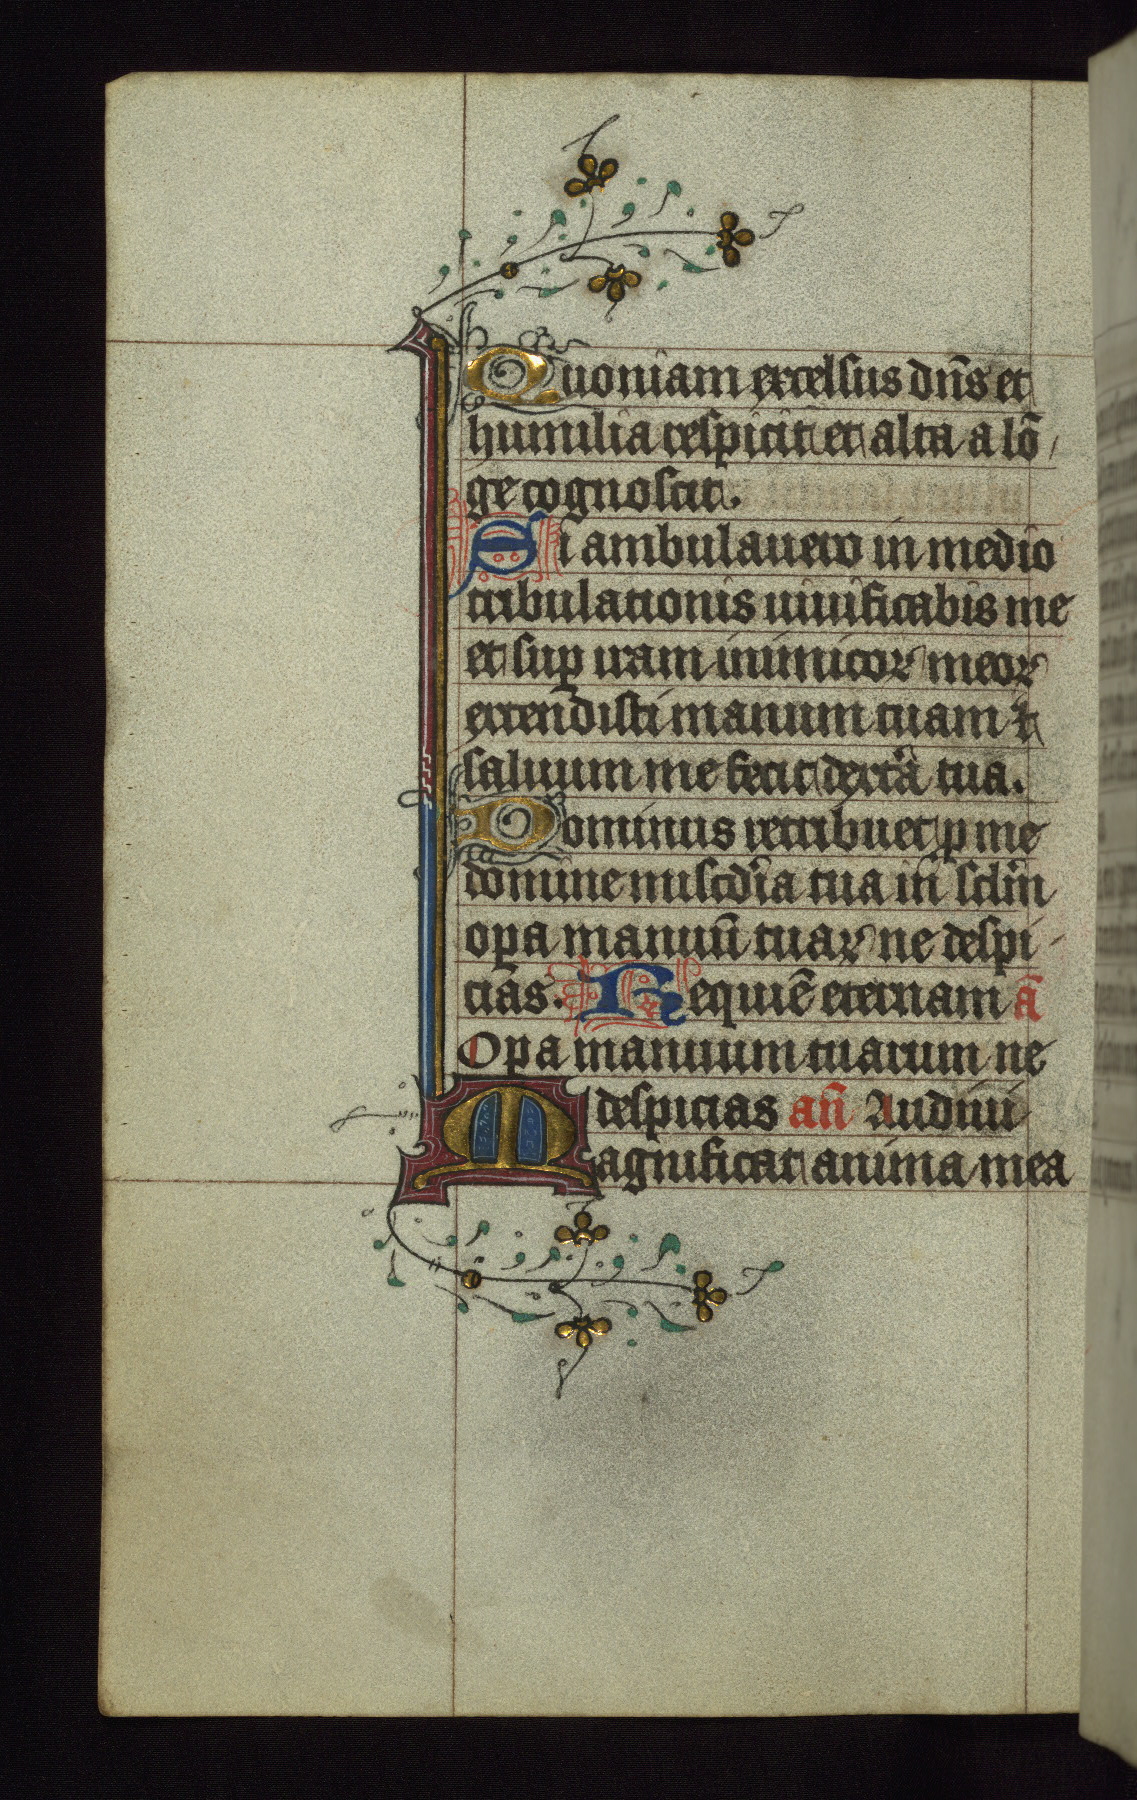 Quoniam excelsus dn̄s et
humilia respicit et alta a lō
ge cognoscit.
Si ambulauero in medio
tribulationis uiuificabis me
et sup iram inimicoꝝ meoꝝ
extendisti manum tuam ⁊
saluum me fecit dext̄a tua.
Dominus retribuet p me
domine misc̄dia tua in sc̄lm
opa manuū tuaꝝ ne despi
cias. Requiē eternam ā
Opa manuum tuarum ne
despicias an̄ Audiui
Magnificat anima mea